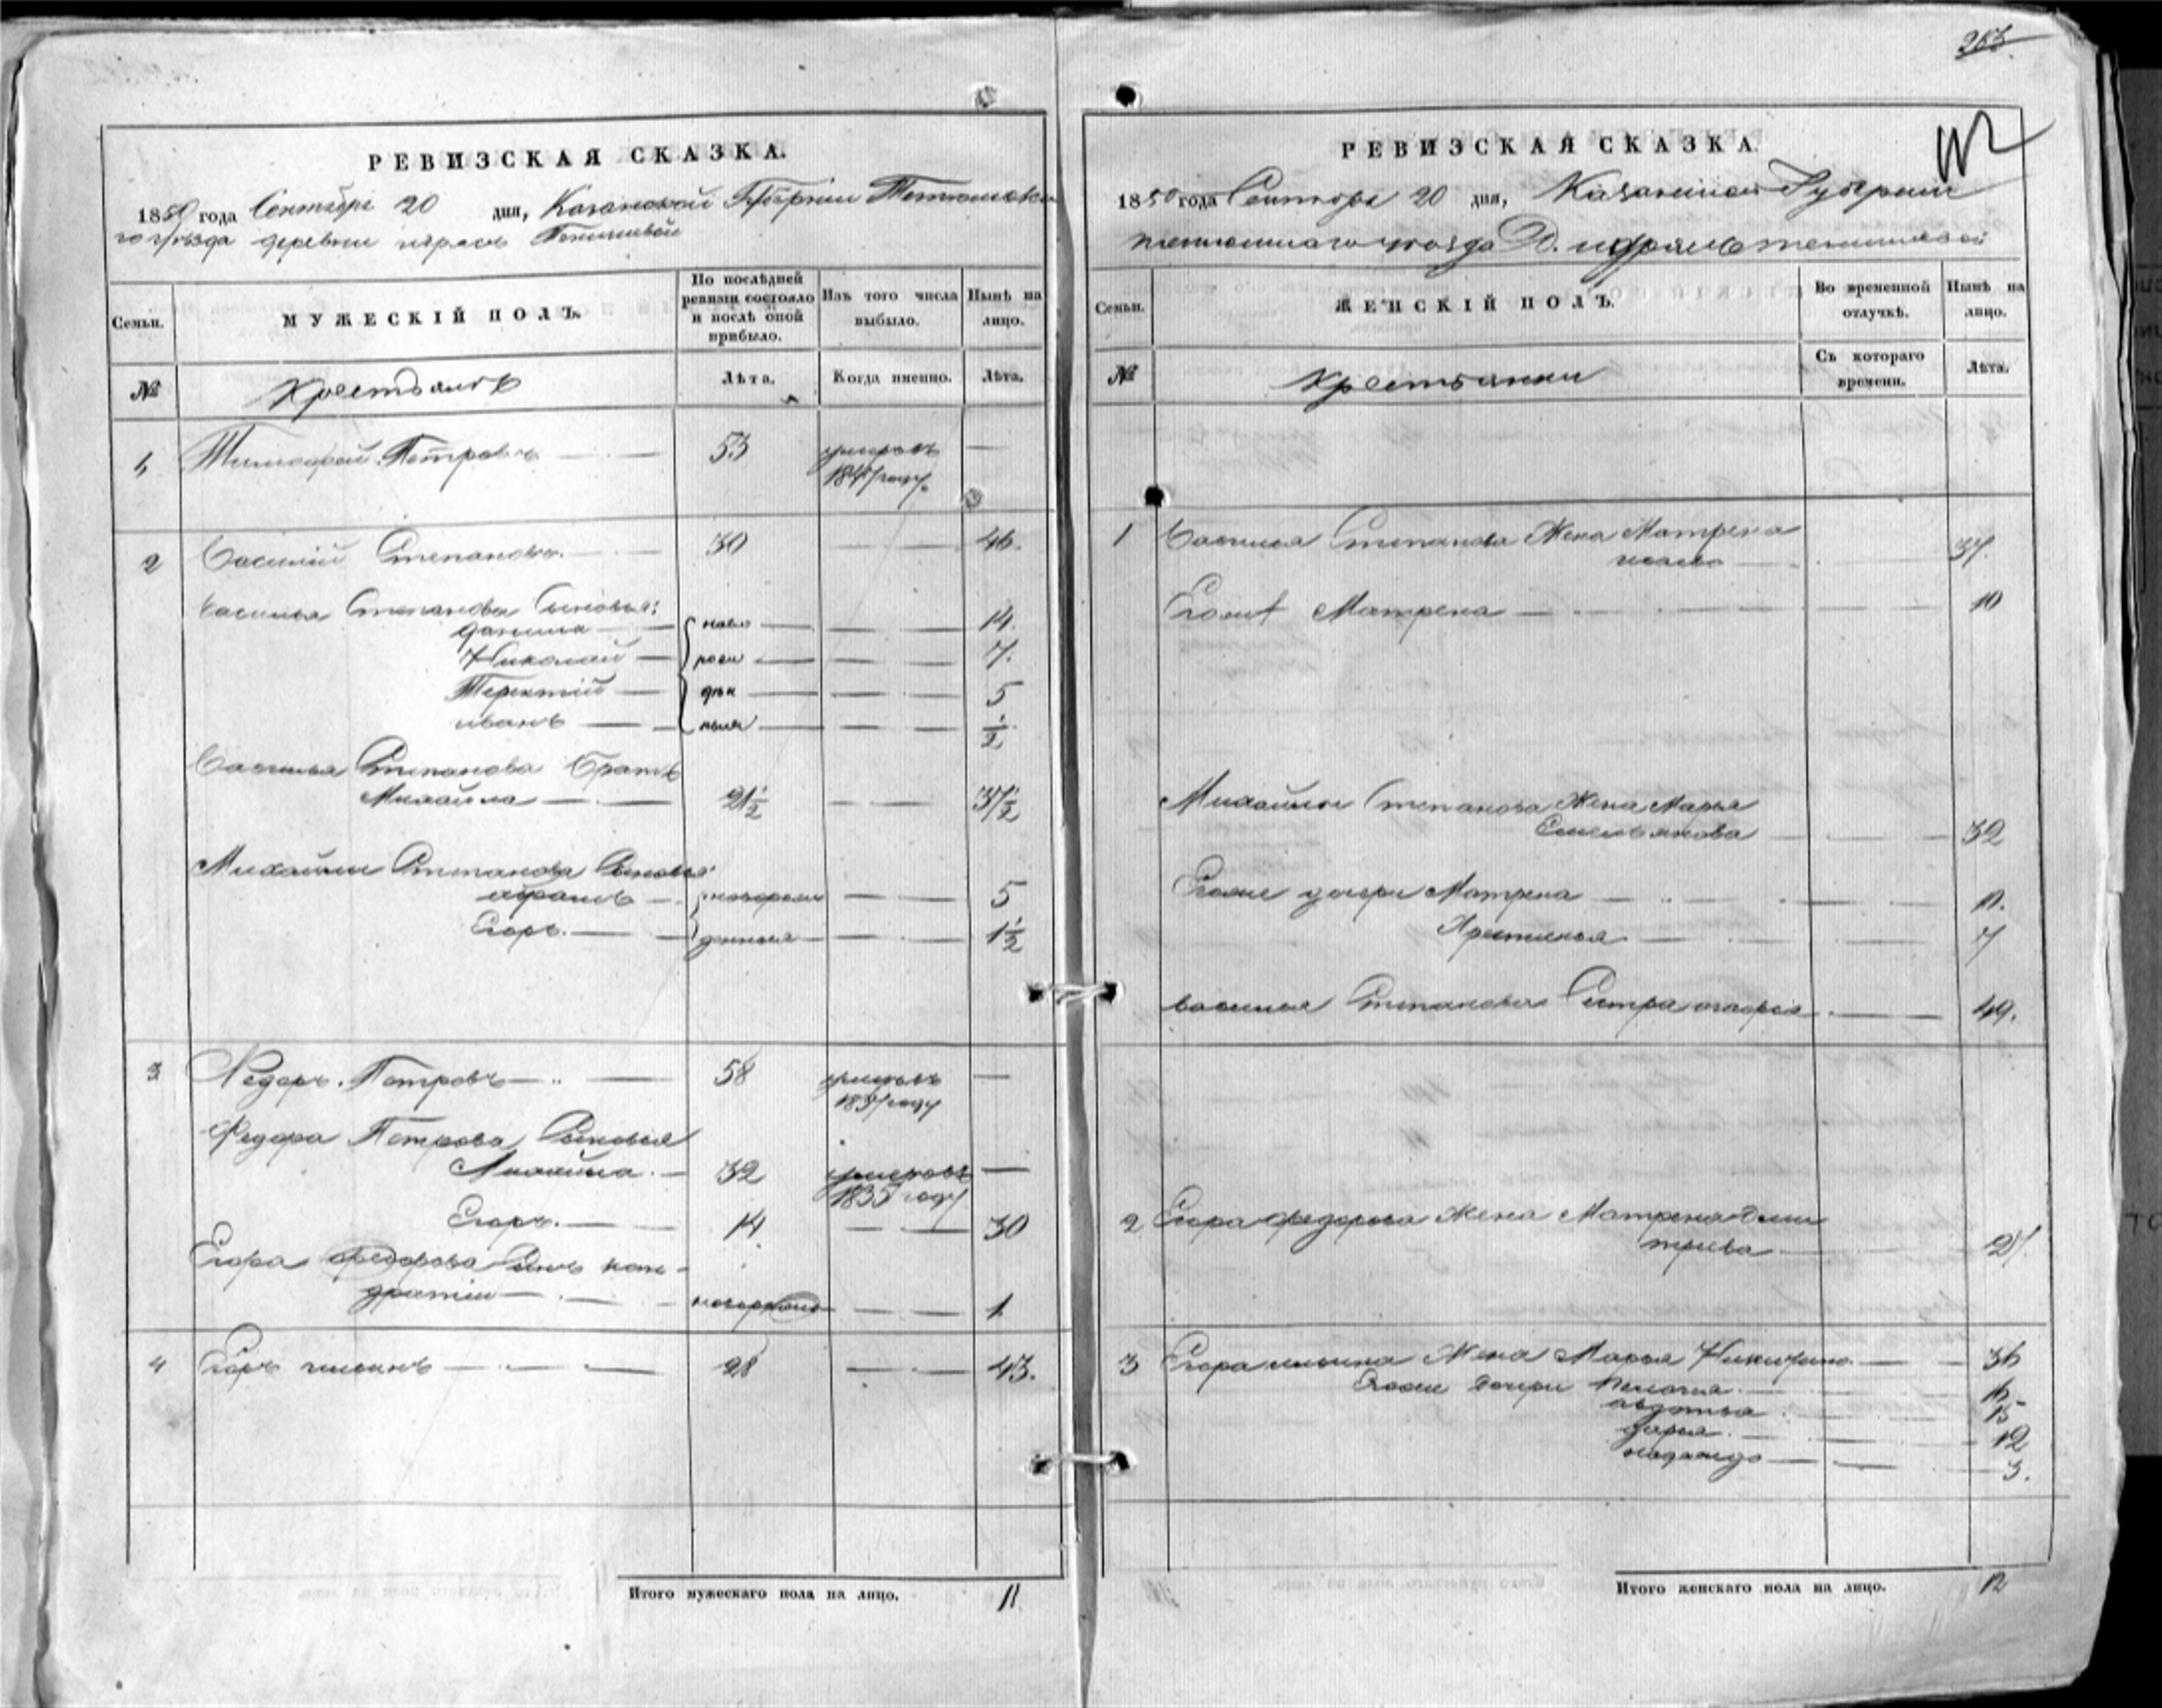 263
РЕВИЗСКАЯ СКАЗКА.
1850 года Сентября 20 дня, Казанской Губернии Тетюшска
го уѣзда деревни Тенишевой
Семьи.
МУЖЕСКІЙ ПОЛЪ.
По послѣдней ревизіи состояло и послѣ оной прибыло.
Изъ того числа выбыло.
Нынѣ на лицо.
№
Крестьянъ
Лѣта.
Когда именно.
Лѣта.
1 Тимофей Петровъ 53 умеръ —
1847 году.
2 Василий Степановъ 30 46.
Василья Степанова Сыновья:
Данила ново 14.
Николай рож 7.
Терентий ден 5
иванъ ныя ½
Василья Степанова Братъ
Михайла 21½ 37½
Михайлы Степанова Сыновья
абрамъ новорож 5
Егоръ. денныя 1½
3 Федоръ Петровъ 58 умеръ —
1837 году
Федора Петрова Сыновья
Михайла 32 умеръ —
1835 году
Егоръ. 14 30
Егора Федорова Сынъ кон-
дратии новорож 1
4 Егоръ ильинъ 28 43.
Итого мужескаго пола на лицо. 11
РЕВИЗСКАЯ СКАЗКА
1850 года Сентября 20 дня, Казанской Губернии
тетюшскаго уезда Д. тенишевой
Семьи.
ЖЕНСКІЙ ПОЛЪ.
Во временной отлучкѣ.
Нынѣ на лицо.
№
Крестьянки
Съ котораго времени.
Лѣта.
1 Василья Степанова Жена Матрена
исаева 37.
Матрена 10
Михайлы Степанова Жена Марья
Емельянова 32
Егоже дочери Матрена 11.
Хрестинья 7
василья Степанова Сестра 49.
2 Егора федорова Жена Матрена Дми
триева 27
3 Егора ильина Жена Марья Никифоро 36
Егоже дочери Пелагия 16
авдотья 15
дарья 12
надежда 3.
Итого женскаго пола на лицо. 12